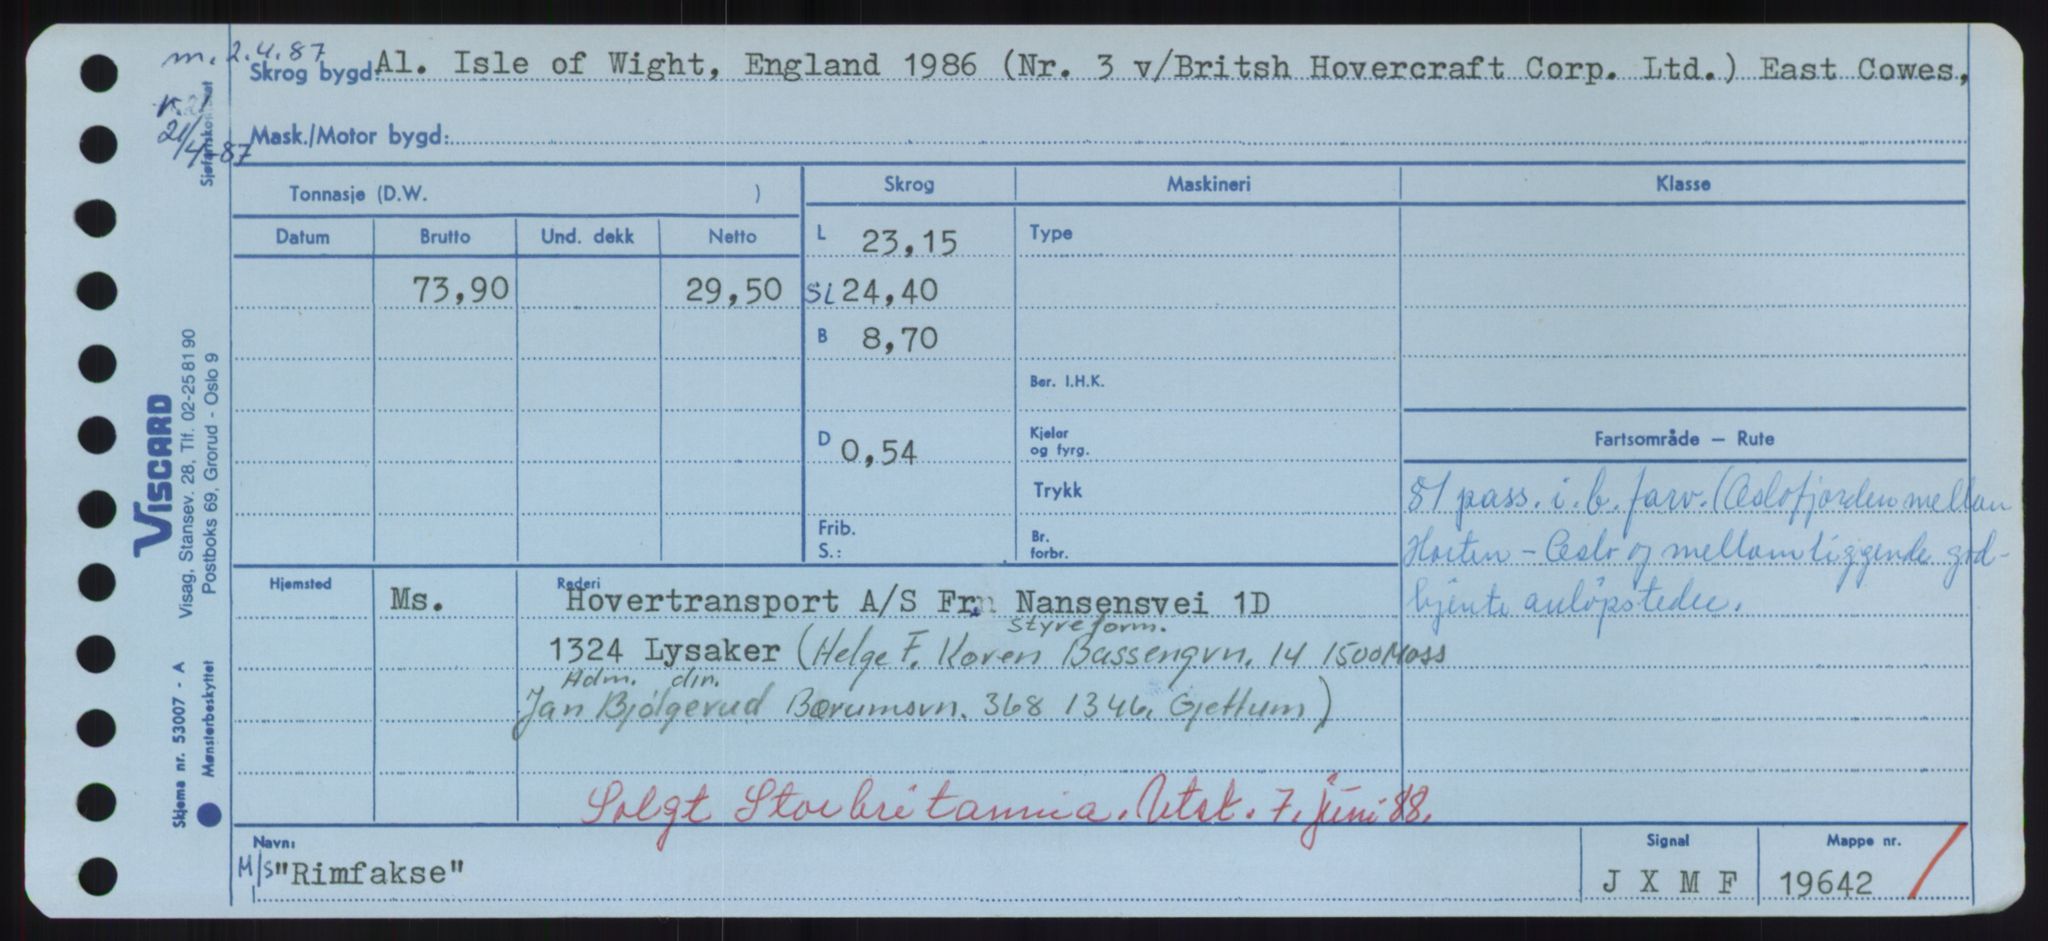 m. 2.4.87
Skrog bygd: Al. Isle of Wight, England 1986 (Nr. 3 v/Britsh Hovercraft Corp. Ltd.) East Cowes,
21/4-87
Mask./Motor bygd:
Tonnasje (D.W. )
Skrog
Maskineri
Klasse
Datum
Brutto
Und. dekk
Netto
L 23,15
Type
73,90
29,50
SL 24,40
B 8,70
Ber. I.H.K.
D 0,54
Kjeler
og fyrg.
Trykk
Frib.
S.:
Br.
forbr.
Fartsområde — Rute
81 pass. i. b. farv. (Oslofjorden mellan
Horten - Oslo og mellomliggende god-
kjente anløpsteder.
Hjemsted
Ms.
Rederi
Hovertransport A/S Frn Nansensvei 1D
styreform.
1324 Lysaker (Helge F. Koren Bassengvn. 14 1500 Moss
Adm. dir.
Jan Bjølgerud Bærumsvn. 368 1346 Gjettum)
Solgt Storbritannia. Utsl. 7. juni 88.
Navn:
M/S "Rimfakse"
Signal
J X M F
Mappe nr.
19642
VISCARD
Visag, Stansev. 28, Tlf. 02-25 81 90
Postboks 69, Grorud - Oslo 9
Skjema nr. 53007 - A
Mønsterbeskyttet